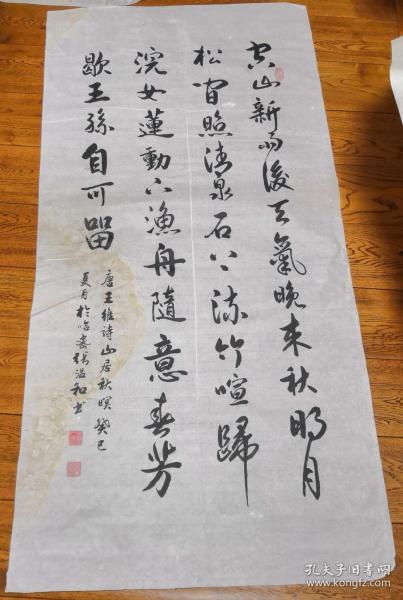 空山新雨後天氣晚來秋明月
松間照清泉石上流竹喧歸
浣女蓮動下漁舟隨意春芳
歇王孫自可留
唐王維詩山居秋暝癸巳
夏月於溢和书
孔夫子旧书网
https://www.kongfz.com/